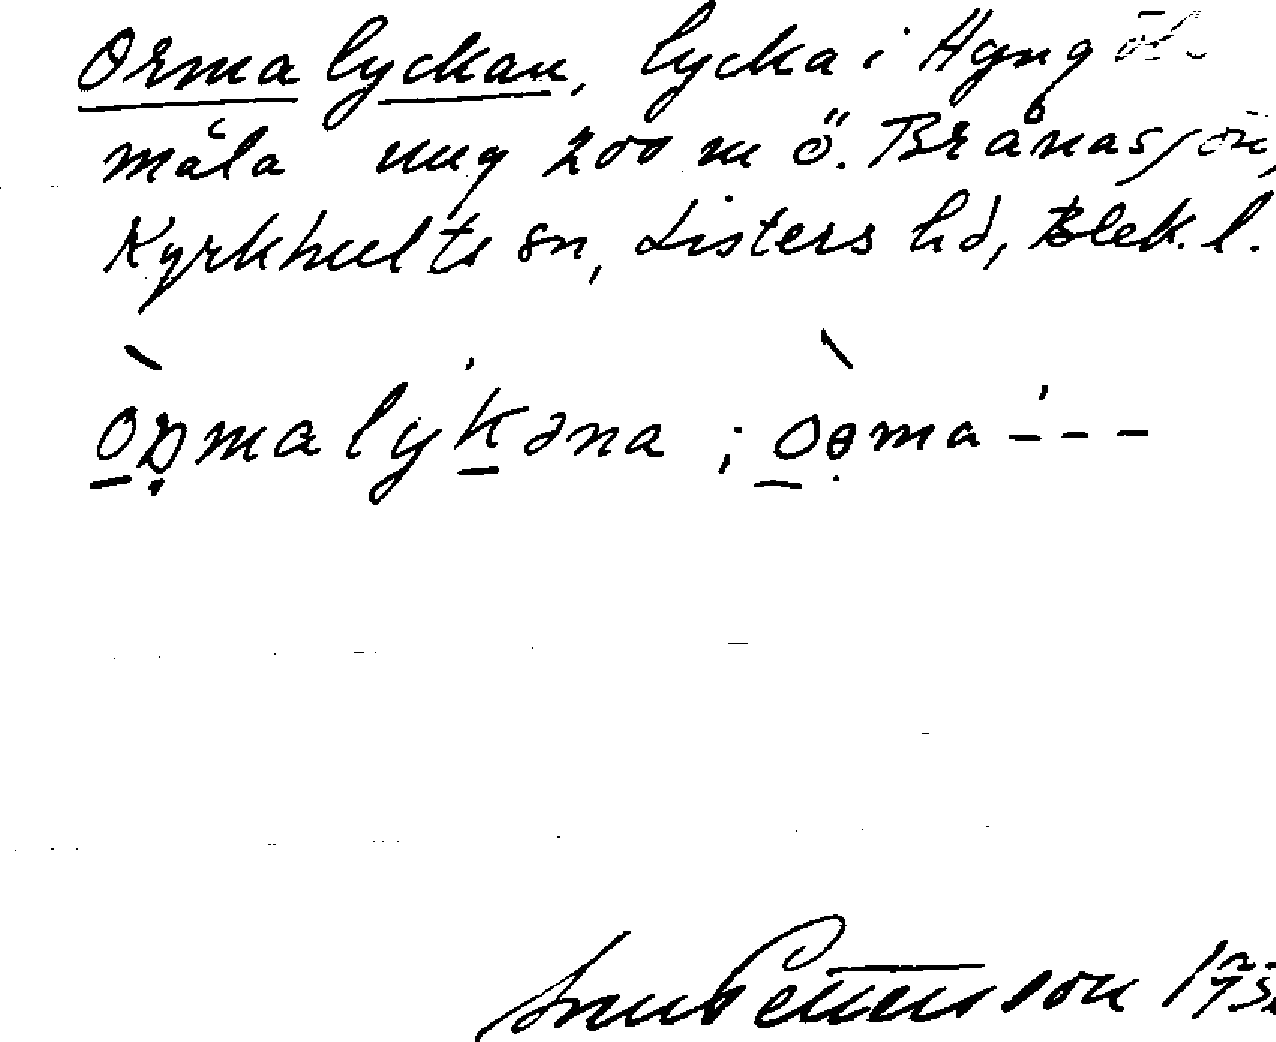 Ormalyckan, lycka i Hyngöl-
måla ung 200 m ö. Brånasjön,
Kyrkhults sn, Listers hd, Blek. l.
òɒ̣malykəna ; òɵ̣ma - - -
Pettersson